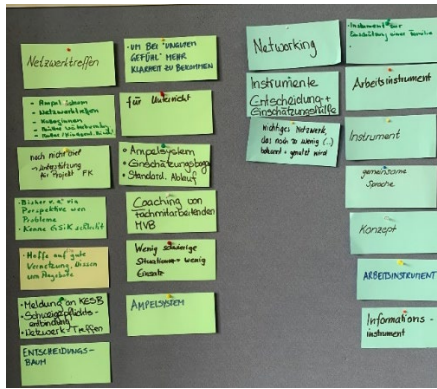 Netzwerktreffen
- Ampelsystem
- Netzwerktreffen
- Kolleginnen
noch nicht klar
→ Unterstützung
für Projekt FK
• Bisher v.a. via
Perspektive von
Probleme
- Kenne GSIK schlecht
- Hoffe auf gute
Vernetzung, Wissen
um Angebote
• Meldung an KESB
• Schweigepflichts-
entbindung
• Netzwerk-Treffen
ENTSCHEIDUNGS-
BAUM
- UM BEI "UNGUTEM
GEFÜHL" MEHR
KLARHEIT ZU BEKOMMEN
für Unterricht
• Ampelsystem
• Einschätzungsbogen
• Standard. Ablauf
Coaching von
Fachmitarbeitenden
MVB
Wenig schwierige
Situationen → wenig
Einsatz
AMPELSYSTEM
Networking
Instrumente
Entscheidung +
Einschätzungshilfe
Wichtiges Netzwerk,
das noch zu wenig (...)
bekannt + genutzt wird
- Instrument für
Einschätzung einer Familie
Arbeitsinstrument
Instrument
gemeinsame
Sprache
Konzept
ARBEITSINSTRUMENT
Informations-
instrument